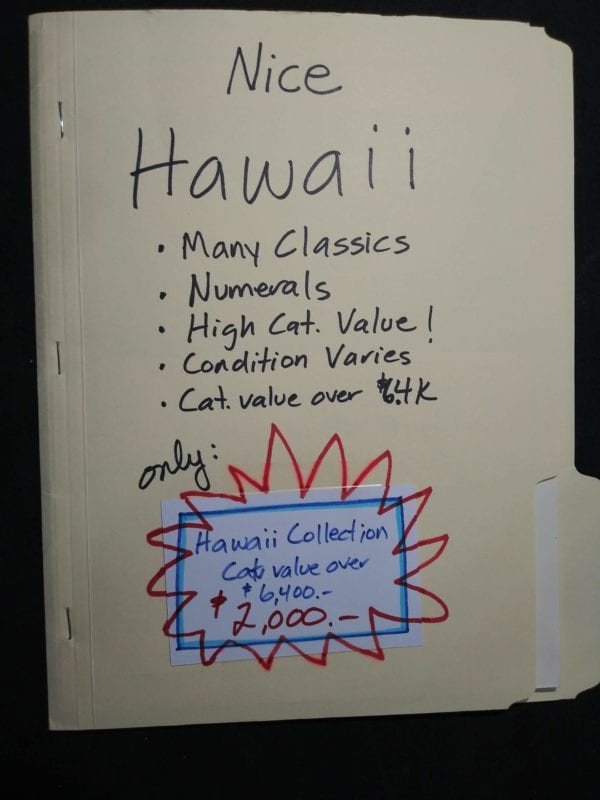 Nice
Hawaii
• Many Classics
• Numerals
• High Cat. Value!
• Condition Varies
• Cat. value over $6.4K
only:
Hawaii Collection
Cat. value over
$6,400.-
$2,000.-